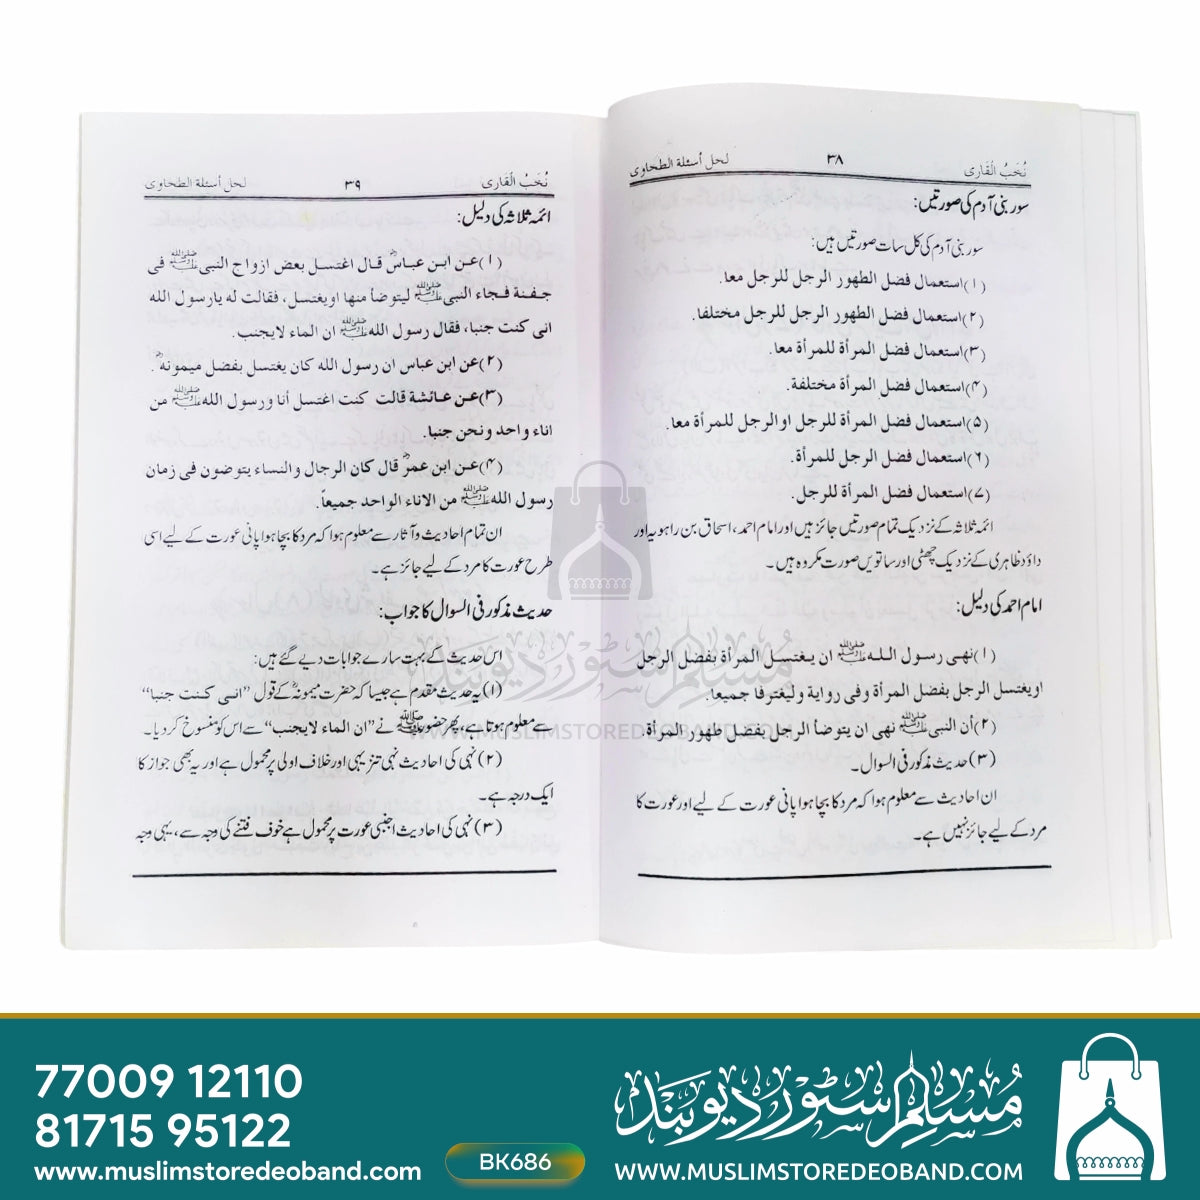 نُخَبُ الْقَارِی ۳۸ لحل أسئلة الطحاوی
سور بنی آدم کی صورتیں:
سور بنی آدم کی کل سات صورتیں ہیں:
(۱) استعمال فضل الطهور الرجل للرجل معا.
(۲) استعمال فضل الطهور الرجل للرجل مختلفا.
(۳) استعمال فضل المرأة للمرأة معا.
(۴) استعمال فضل المرأة مختلفة.
(۵) استعمال فضل المرأة للرجل اوالرجل للمرأة معا.
(۶) استعمال فضل الرجل للمرأة.
(۷) استعمال فضل المرأة للرجل.
ائمہ ثلاثہ کے نزدیک تمام صورتیں جائز ہیں اور امام احمد، اسحاق بن راہویہ اور
داؤد ظاہری کے نزدیک چھٹی اور ساتویں صورت مکروہ ہیں۔
امام احمد کی دلیل:
(۱) نهى رسول الله ﷺ ان يغتسل المرأة بفضل الرجل
اويغتسل الرجل بفضل المرأة وفى رواية وليغترفا جميعا.
(۲) أن النبى ﷺ نهى ان يتوضأ الرجل بفضل طهور المرأة.
(۳) حدیث مذکور فی السوال۔
ان احادیث سے معلوم ہوا کہ مرد کا بچا ہوا پانی عورت کے لیے اور عورت کا
مرد کے لیے جائز نہیں ہے۔
نُخَبُ الْقَارِی ۳۹ لحل أسئلة الطحاوی
ائمہ ثلاثہ کی دلیل:
(۱) عن ابن عباسؓ قال اغتسل بعض ازواج النبى ﷺ فى
جفنة فجاء النبى ﷺ ليتوضأ منها اويغتسل، فقالت له يارسول الله
انى كنت جنبا، فقال رسول الله ﷺ ان الماء لايجنب.
(۲) عن ابن عباس ان رسول الله كان يغتسل بفضل ميمونةؓ.
(۳) عن عائشة قالت كنت اغتسل أنا ورسول الله ﷺ من
اناء واحد ونحن جنبا.
(۴) عن ابن عمرؓ قال كان الرجال والنساء يتوضون فى زمان
رسول الله ﷺ من الاناء الواحد جميعاً.
ان تمام احادیث و آثار سے معلوم ہوا کہ مرد کا بچا ہوا پانی عورت کے لیے اسی
طرح عورت کا مرد کے لیے جائز ہے۔
حدیث مذکور فی السوال کا جواب:
اس حدیث کے بہت سارے جوابات دیے گئے ہیں:
(۱) یہ حدیث مقدم ہے جیسا کہ حضرت میمونہؓ کے قول ”انى كنت جنبا“
سے معلوم ہوتا ہے، پھر حضور ﷺ نے ”ان الماء لايجنب“ سے اس کو منسوخ کر دیا۔
(۲) نہی کی احادیث نہی تنزیہی اور خلاف اولی پر محمول ہے اور یہ بھی جواز کا
ایک درجہ ہے۔
(۳) نہی کی احادیث اجنبی عورت پر محمول ہے خوف فتنے کی وجہ سے، یہی وجہ
مسلم سٹور دیوبند
WWW.MUSLIMSTOREDEOBAND.COM
77009 12110
81715 95122
www.muslimstoredeoband.com
BK686
مسلم سٹور دیوبند
WWW.MUSLIMSTOREDEOBAND.COM